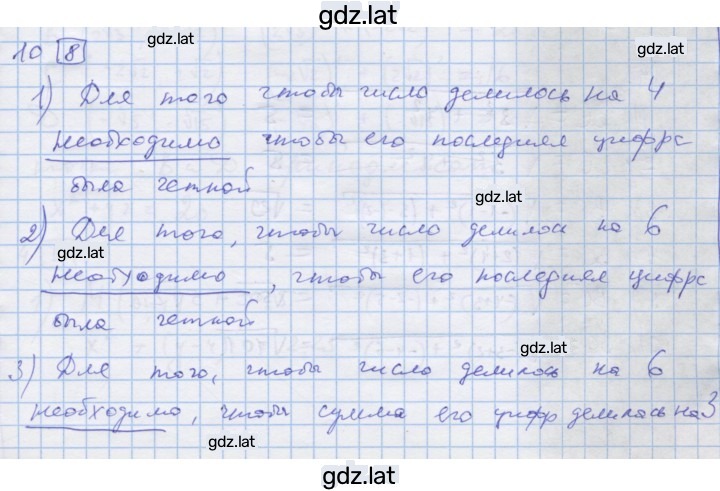 gdz.lat
10 8
gdz.lat
gdz.lat
1) Для того чтобы число делилось на 4
необходимо чтобы его последняя цифра
была четной
gdz.lat
2) Для того, чтобы число делилось на 6
gdz.lat
необходимо, чтобы его последняя цифра
была четной
gdz.lat
3) Для того, чтобы число делилось на 6
необходимо, чтобы сумма его цифр делилась на 3
gdz.lat
gdz.lat